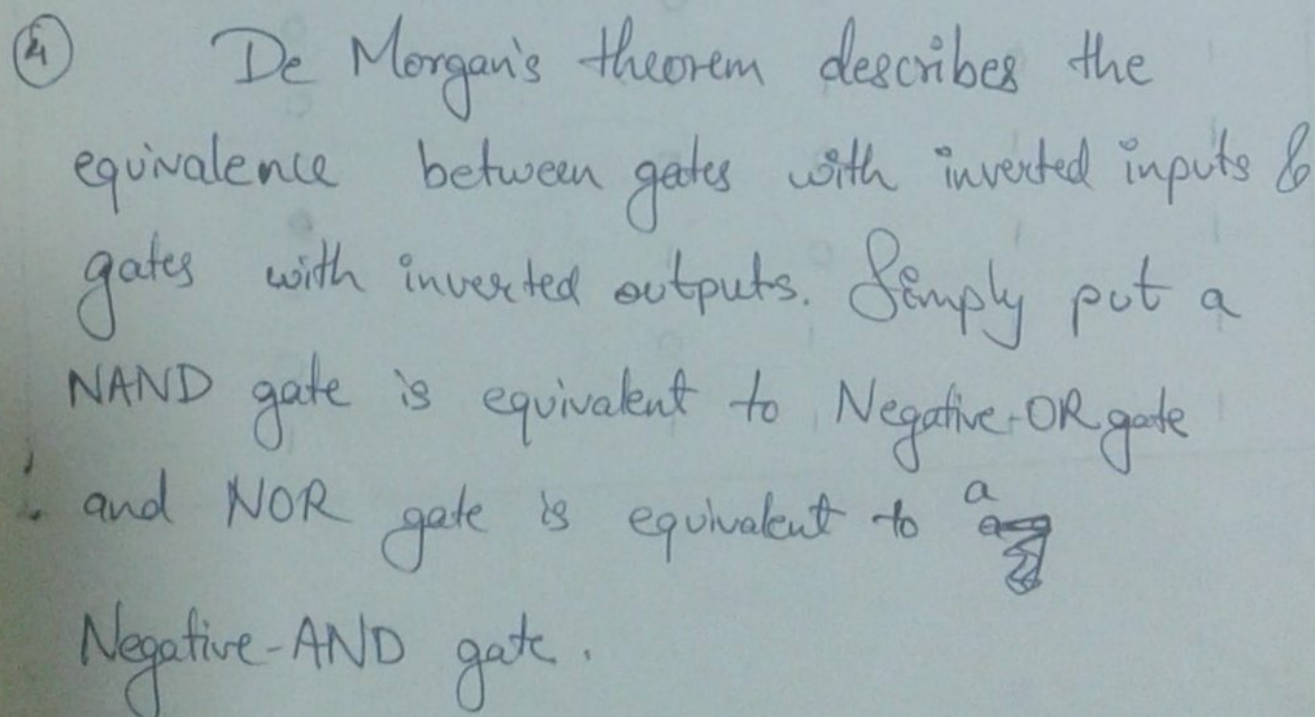 ④ De Morgan's theorem describes the
equivalence between gates with inverted inputs &
gates with inverted outputs. Simply put a
NAND gate is equivalent to Negative-OR gate
and NOR gate is equivalent to a
Negative-AND gate.